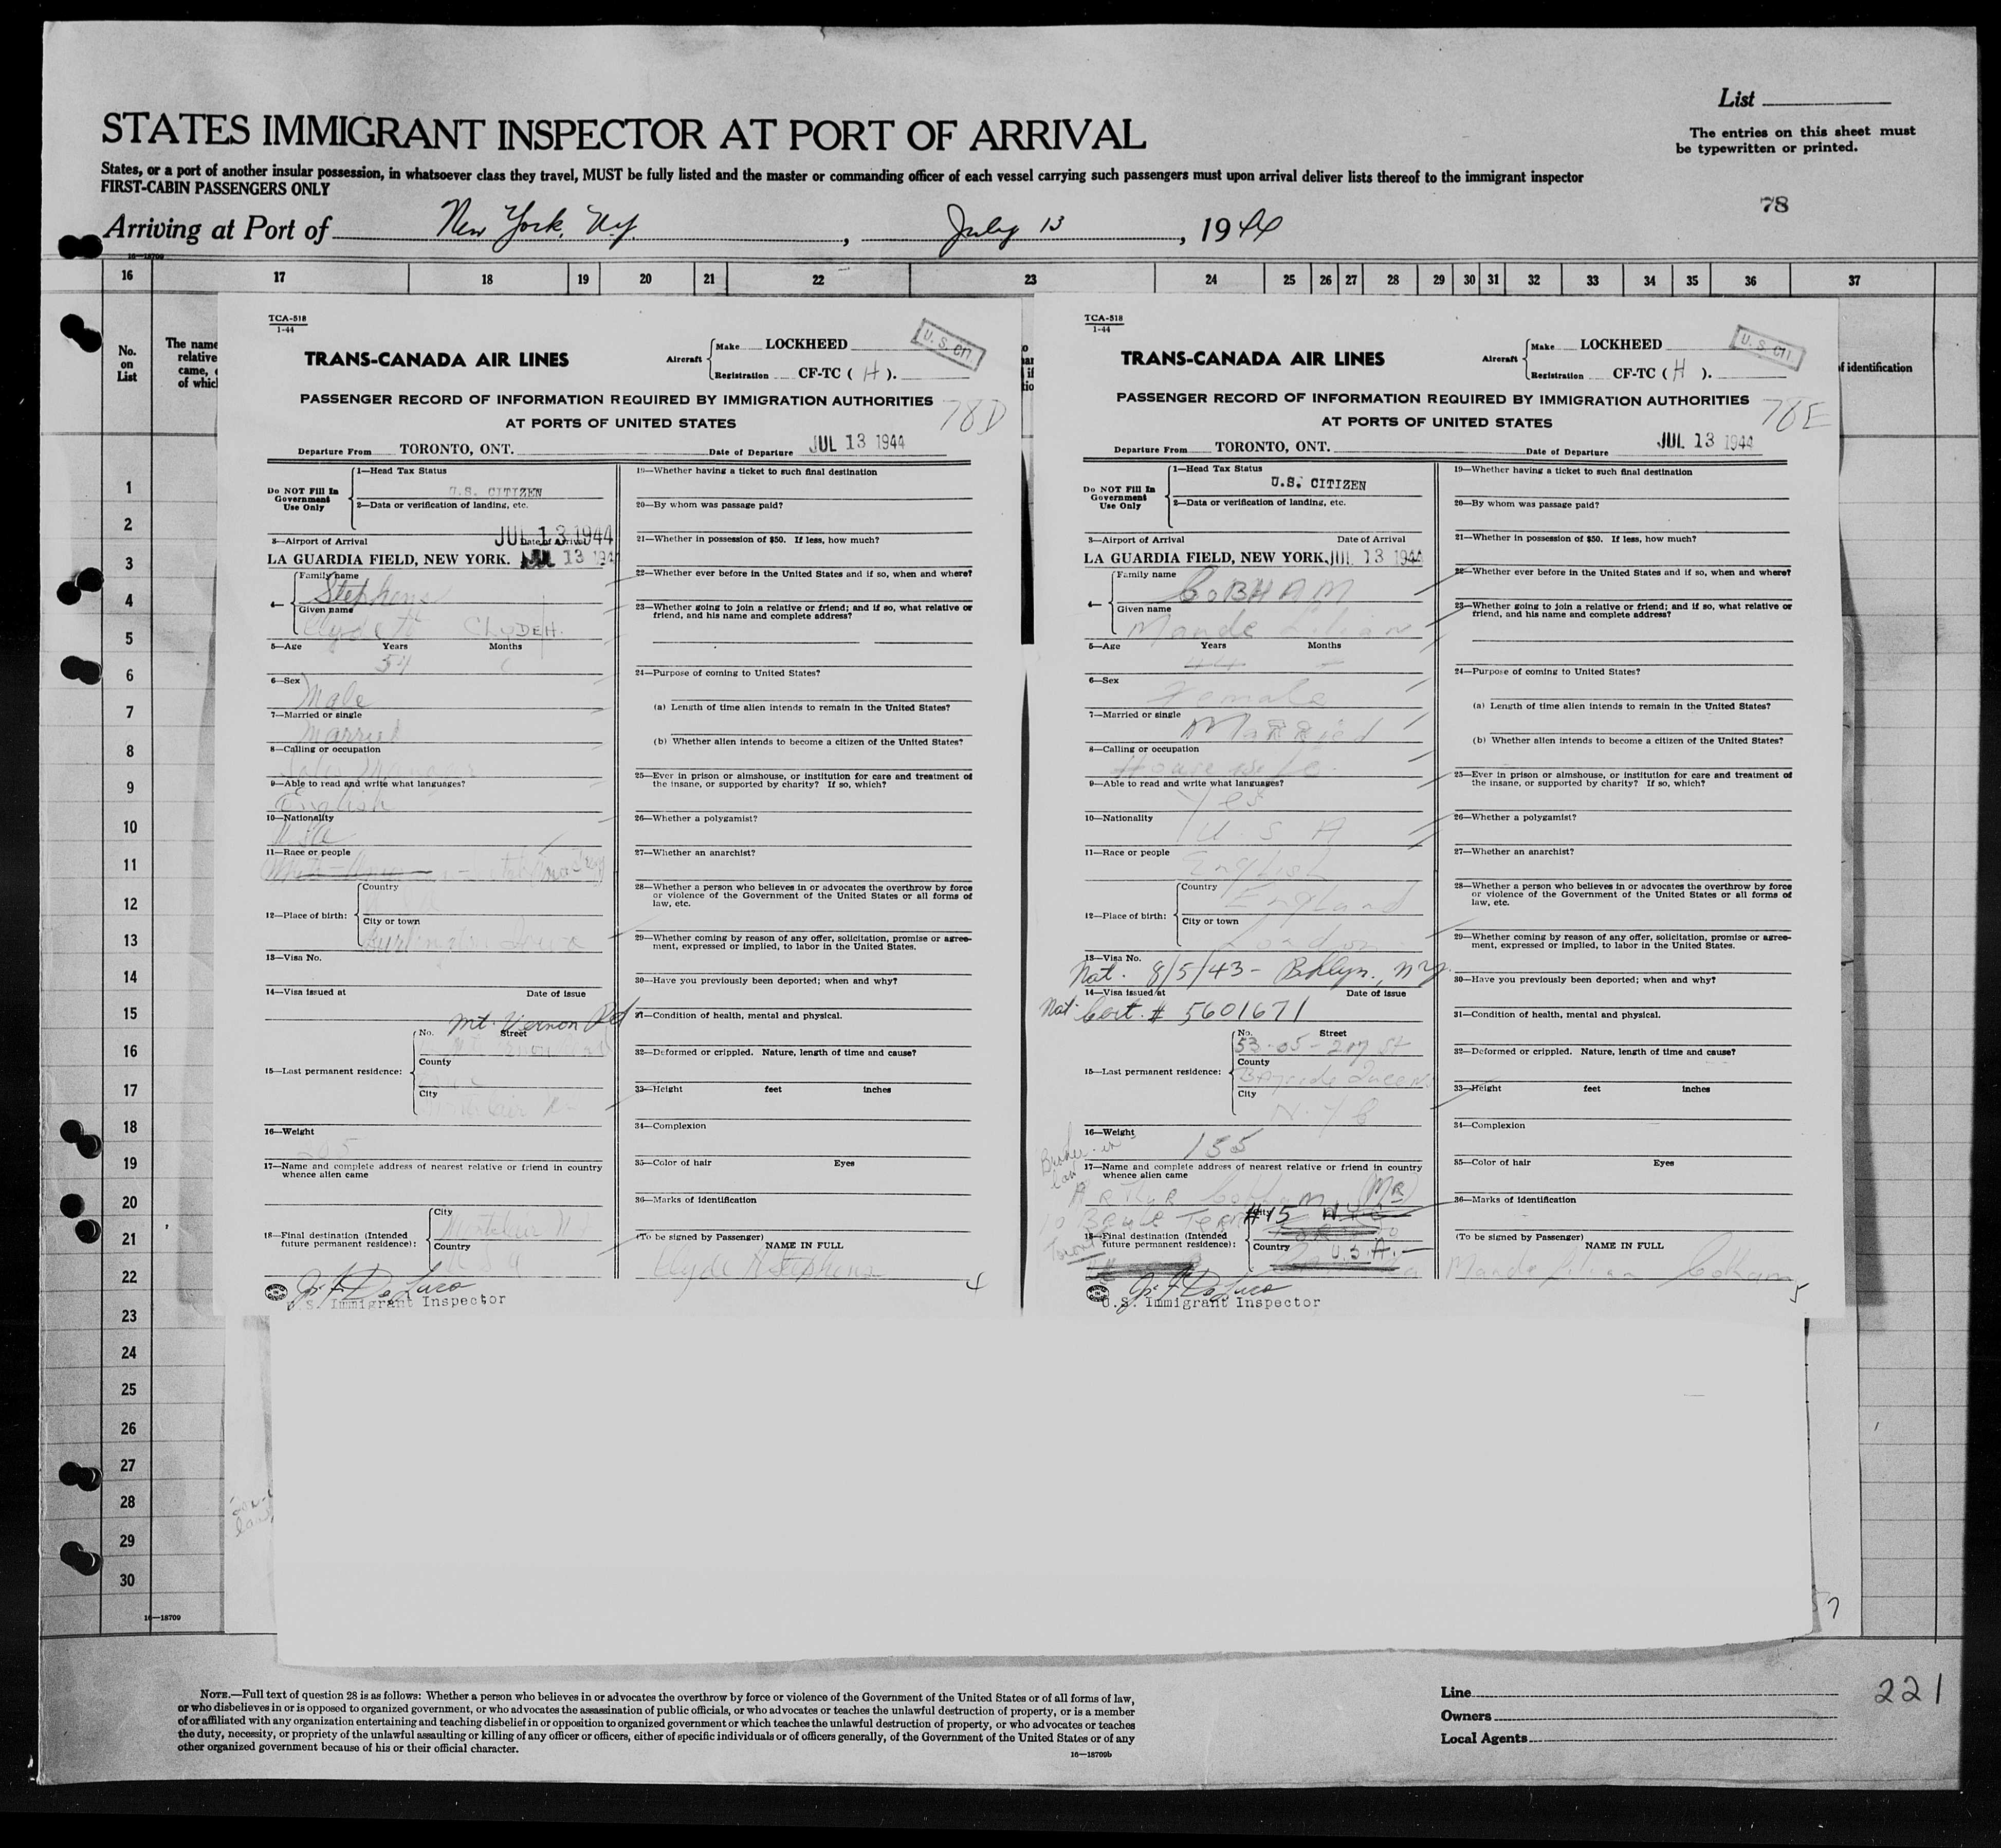 List
STATES IMMIGRANT INSPECTOR AT PORT OF ARRIVAL
The entries on this sheet must
be typewritten or printed.
States, or a port of another insular possession, in whatsoever class they travel, MUST be fully listed and the master or commanding officer of each vessel carrying such passengers must upon arrival deliver lists thereof to the immigrant inspector
FIRST-CABIN PASSENGERS ONLY
78
Arriving at Port of New York, N.Y. , July 13 , 1944
16—18709
16 17 18 19 20 21 22 23 24 25 26 27 28 29 30 31 32 33 34 35 36 37
No.
on
List
The name
relative
came,
of which
of identification
1
2
3
4
5
6
7
8
9
10
11
12
13
14
15
16
17
18
19
20
21
22
23
24
25
26
27
28
29
30
16—18709
TCA-518
1-44
TRANS-CANADA AIR LINES
Aircraft
Make LOCKHEED
Registration CF-TC ( H ).
U.S. CIT.
PASSENGER RECORD OF INFORMATION REQUIRED BY IMMIGRATION AUTHORITIES
AT PORTS OF UNITED STATES
78D
Departure From TORONTO, ONT. Date of Departure JUL 13 1944
Do NOT Fill In
Government
Use Only
1—Head Tax Status
U.S. CITIZEN
2—Data or verification of landing, etc.
JUL 13 1944
3—Airport of Arrival Date of Arrival
LA GUARDIA FIELD, NEW YORK. JUL 13 194
4—
Family name
Stephens
Given name
Clyde H CLYDE H.
5—Age Years Months
54
6—Sex
Male
7—Married or single
Married
8—Calling or occupation
Sales Manager
9—Able to read and write what languages?
English
10—Nationality
USA
11—Race or people
12—Place of birth:
Country
City or town
Burlington Iowa
13—Visa No.
14—Visa issued at Date of issue
Mt. Vernon Rd
15—Last permanent residence:
No. Street
County
City
16—Weight
205
17—Name and complete address of nearest relative or friend in country
whence alien came
18—Final destination (Intended
future permanent residence):
City
Montclair N J
Country
U S A
U.S. Immigrant Inspector
19—Whether having a ticket to such final destination
20—By whom was passage paid?
21—Whether in possession of $50. If less, how much?
22—Whether ever before in the United States and if so, when and where?
23—Whether going to join a relative or friend; and if so, what relative or
friend, and his name and complete address?
24—Purpose of coming to United States?
(a) Length of time alien intends to remain in the United States?
(b) Whether alien intends to become a citizen of the United States?
25—Ever in prison or almshouse, or institution for care and treatment of
the insane, or supported by charity? If so, which?
26—Whether a polygamist?
27—Whether an anarchist?
28—Whether a person who believes in or advocates the overthrow by force
or violence of the Government of the United States or all forms of
law, etc.
29—Whether coming by reason of any offer, solicitation, promise or agree-
ment, expressed or implied, to labor in the United States.
30—Have you previously been deported; when and why?
31—Condition of health, mental and physical.
32—Deformed or crippled. Nature, length of time and cause?
33—Height feet inches
34—Complexion
35—Color of hair Eyes
36—Marks of identification
(To be signed by Passenger)
NAME IN FULL
Clyde H Stephens
4
TCA-518
1-44
TRANS-CANADA AIR LINES
Aircraft
Make LOCKHEED
Registration CF-TC ( H ).
U.S. CIT.
PASSENGER RECORD OF INFORMATION REQUIRED BY IMMIGRATION AUTHORITIES
AT PORTS OF UNITED STATES
78E
Departure From TORONTO, ONT. Date of Departure JUL 13 1944
Do NOT Fill In
Government
Use Only
1—Head Tax Status
U.S. CITIZEN
2—Data or verification of landing, etc.
3—Airport of Arrival Date of Arrival
LA GUARDIA FIELD, NEW YORK. JUL 13 1944
4—
Family name
COBHAM
Given name
Maude Lilian
5—Age Years Months
44 —
6—Sex
Female
7—Married or single
Married
8—Calling or occupation
Housewife
9—Able to read and write what languages?
Yes
10—Nationality
U S A
11—Race or people
English
12—Place of birth:
Country
England
City or town
London
13—Visa No.
Nat. 8/5/43 - Bklyn, N.Y.
14—Visa issued at Date of issue
Nat Cert. # 5601671
15—Last permanent residence:
No. Street
53-05-207 St
County
Bayside Queens
City
N.Y.C
16—Weight
155
Brother-in
law
17—Name and complete address of nearest relative or friend in country
whence alien came
Arthur Cobham (MR)
18—Final destination (Intended
future permanent residence):
City
#15
Country
U.S.A.
U.S. Immigrant Inspector
19—Whether having a ticket to such final destination
20—By whom was passage paid?
21—Whether in possession of $50. If less, how much?
22—Whether ever before in the United States and if so, when and where?
23—Whether going to join a relative or friend; and if so, what relative or
friend, and his name and complete address?
24—Purpose of coming to United States?
(a) Length of time alien intends to remain in the United States?
(b) Whether alien intends to become a citizen of the United States?
25—Ever in prison or almshouse, or institution for care and treatment of
the insane, or supported by charity? If so, which?
26—Whether a polygamist?
27—Whether an anarchist?
28—Whether a person who believes in or advocates the overthrow by force
or violence of the Government of the United States or all forms of
law, etc.
29—Whether coming by reason of any offer, solicitation, promise or agree-
ment, expressed or implied, to labor in the United States.
30—Have you previously been deported; when and why?
31—Condition of health, mental and physical.
32—Deformed or crippled. Nature, length of time and cause?
33—Height feet inches
34—Complexion
35—Color of hair Eyes
36—Marks of identification
(To be signed by Passenger)
NAME IN FULL
Maude Lilian Cobham
5
NOTE.—Full text of question 28 is as follows: Whether a person who believes in or advocates the overthrow by force or violence of the Government of the United States or of all forms of law,
or who disbelieves in or is opposed to organized government, or who advocates the assassination of public officials, or who advocates or teaches the unlawful destruction of property, or is a member
of or affiliated with any organization entertaining and teaching disbelief in or opposition to organized government or which teaches the unlawful destruction of property, or who advocates or teaches
the duty, necessity, or propriety of the unlawful assaulting or killing of any officer or officers, either of specific individuals or of officers generally, of the Government of the United States or of any
other organized government because of his or their official character.
16—18709b
Line
Owners
Local Agents
221